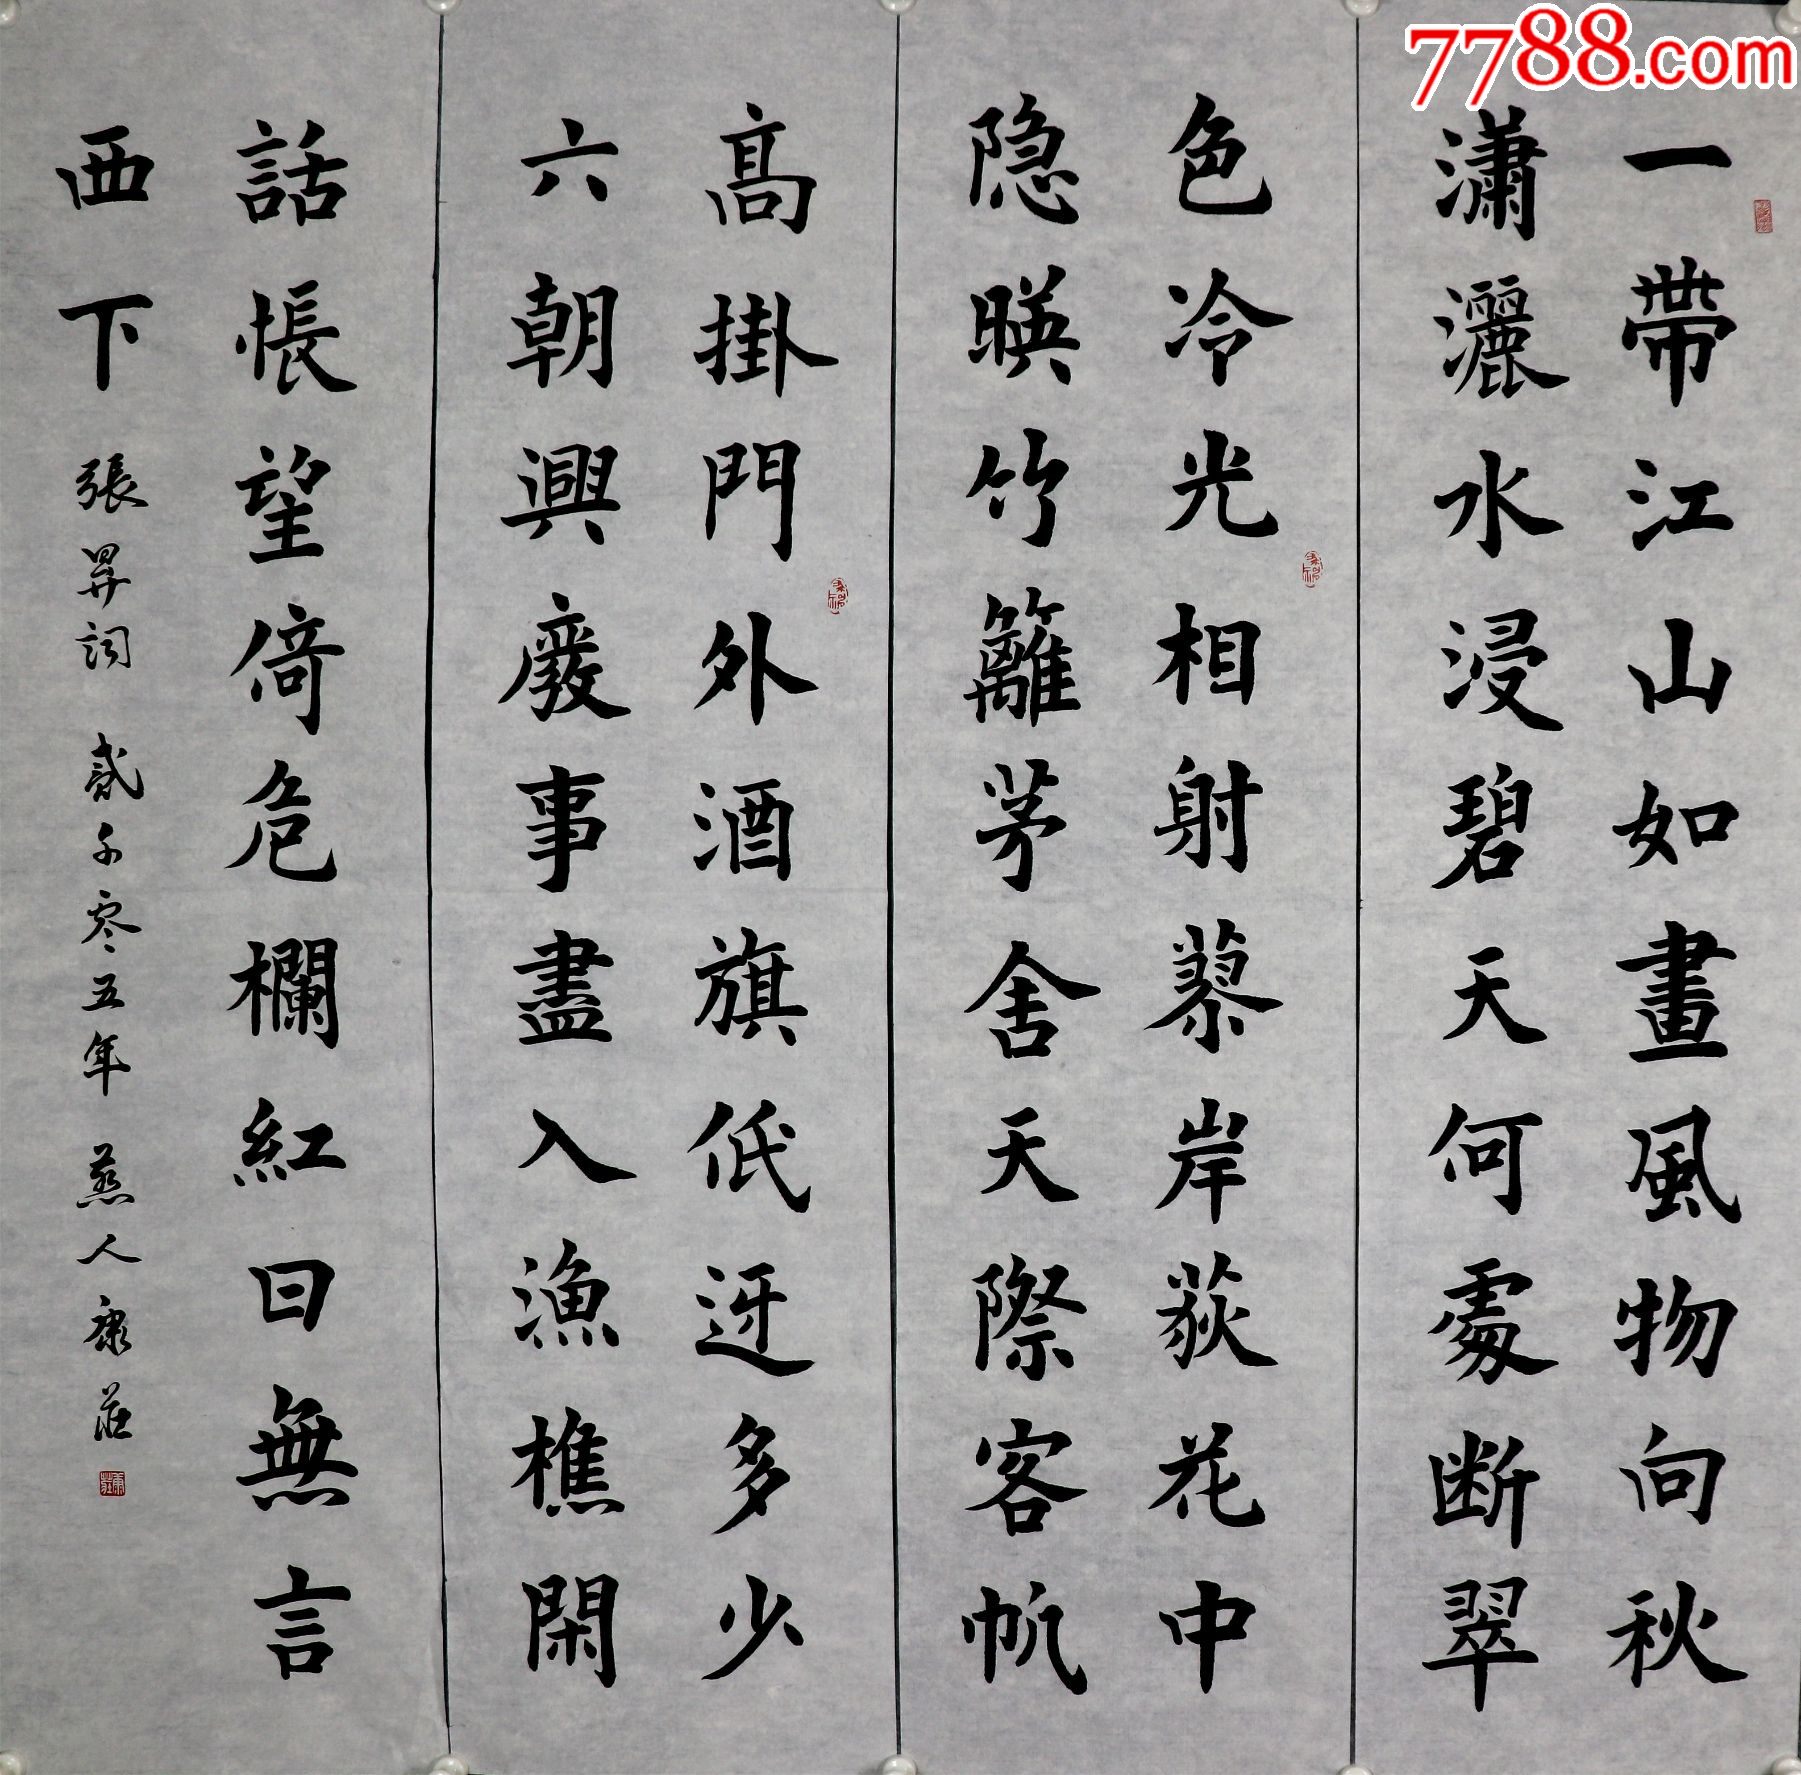 7788.com
一帶江山如畫風物向秋
瀟灑水浸碧天何處断翠
色冷光相射蓼岸荻花中
隐暎竹籬茅舍天際客帆
高掛門外酒旗低迓多少
六朝興廢事盡入漁樵閑
話悵望倚危欄紅日無言
西下
張昇詞 貳千零五年 燕人康莊